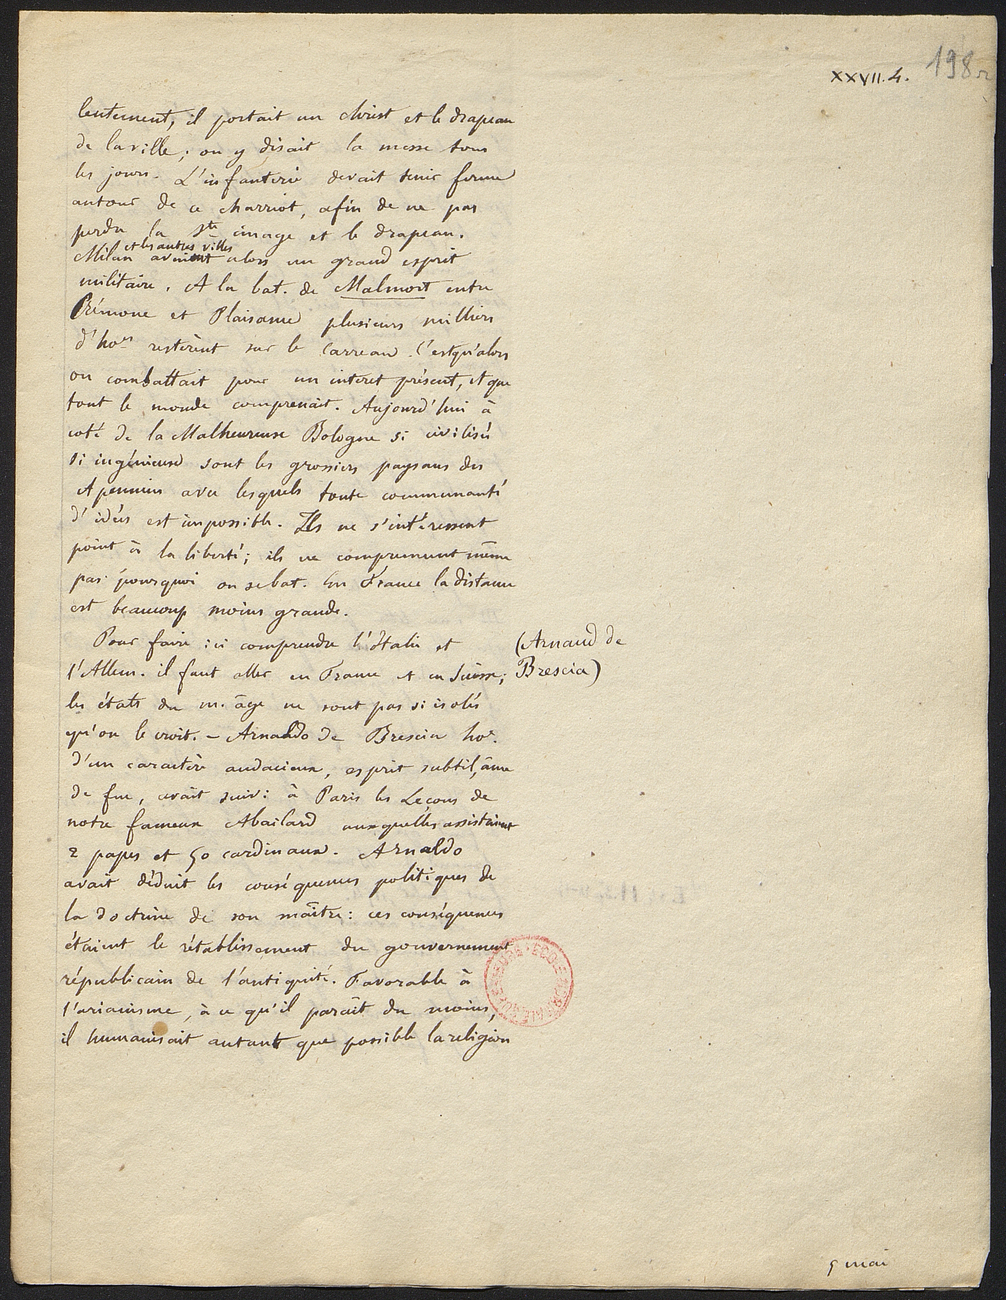 198 r
XXVII. 4.
lentement, il portait un Christ et le drapeau
de la ville ; on y disait la messe tous
les jours. L'infanterie devait tenir ferme
autour de ce charriot, afin de ne pas
perdre la ste image et le drapeau.
Milan et les autres villes avaient alors un grand esprit
militaire. A la bat. de Malmort entre
Crémone et Plaisance plusieurs milliers
d'hoes restèrent sur le carreau. C'est qu'alors
on combattait pour un interet présent, et que
tout le monde comprenait. Aujourd'hui à
coté de la Malheureuse Bologne si civilisée
si ingénieuse sont les grossiers paysans des
Apennins avec lesquels toute communauté
d'idées est impossible. Ils ne s'intéressent
point à la liberté ; ils ne comprennent même
pas pourquoi on se bat. En France la distance
est beaucoup moins grande.
Pour faire ici comprendre l'Italie et
l'Allem. il faut aller en France et en Suisse ;
les états du m. âge ne sont pas si isolés
qu'on le croit. – Arnaldo de Brescia hoe.
d'un caractère audacieux, esprit subtil, âme
de feu, avait suivi à Paris les Leçons de
notre fameux Abailard auxquelles assistaient
2 papes et 50 cardinaux. Arnaldo
avait déduit les conséquences politiques de
la doctrine de son maître : ces conséquences
étaient le rétablissement du gouvernement
républicain de l'antiquité. Favorable à
l'arianisme, à ce qu'il paraît du moins,
il humanisait autant que possible la religion
(Arnaud de
Brescia)
5 mai